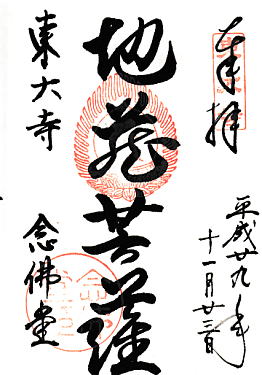 奉拝
平成廿九年
十一月廿三日
地蔵菩薩
東大寺
念佛堂